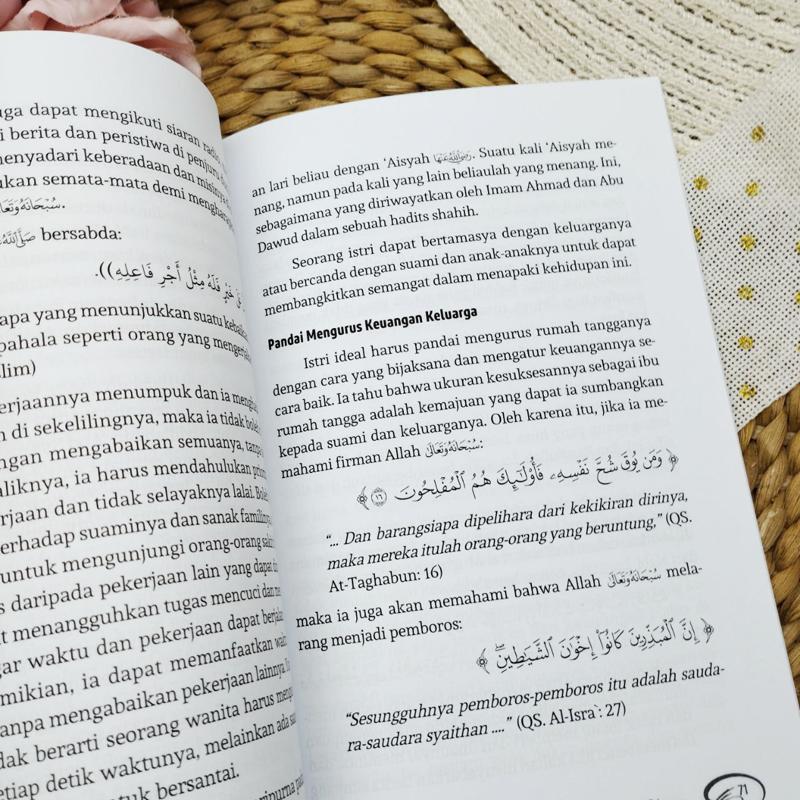 uga dapat mengikuti siaran radio
i berita dan peristiwa di penjuru
menyadari keberadaan dan misinya
ukan semata-mata demi mengharap
سُبْحَانَهُ وَتَعَالَى.
صَلَّى اللَّهُ عَلَيْهِ وَسَلَّمَ bersabda:
خَيْرٍ فَلَهُ مِثْلُ أَجْرِ فَاعِلِهِ)).
apa yang menunjukkan suatu
pahala seperti orang yang
lim)
erjaannya menumpuk dan ia
n di sekelilingnya, maka ia tidak
ngan mengabaikan semuanya,
aliknya, ia harus mendahulukan
erjaan dan tidak selayaknya lalai.
erhadap suaminya dan sanak
untuk mengunjungi orang-orang
s daripada pekerjaan lain yang dapat
t menangguhkan tugas mencuci dan
gar waktu dan pekerjaan dapat
mikian, ia dapat memanfaatkan
anpa mengabaikan pekerjaan lainnya.
dak berarti seorang wanita harus
etiap detik waktunya, melainkan ada
tuk bersantai.
an lari beliau dengan ‘Aisyah رَضِيَ اللَّهُ عَنْهَا. Suatu kali ‘Aisyah me-
nang, namun pada kali yang lain beliaulah yang menang. Ini,
sebagaimana yang diriwayatkan oleh Imam Ahmad dan Abu
Dawud dalam sebuah hadits shahih.
Seorang istri dapat bertamasya dengan keluarganya
atau bercanda dengan suami dan anak-anaknya untuk dapat
membangkitkan semangat dalam menapaki kehidupan ini.
Pandai Mengurus Keuangan Keluarga
Istri ideal harus pandai mengurus rumah tangganya
dengan cara yang bijaksana dan mengatur keuangannya se-
cara baik. Ia tahu bahwa ukuran kesuksesannya sebagai ibu
rumah tangga adalah kemajuan yang dapat ia sumbangkan
kepada suami dan keluarganya. Oleh karena itu, jika ia me-
mahami firman Allah سُبْحَانَهُ وَتَعَالَى:
﴿ وَمَن يُوقَ شُحَّ نَفْسِهِۦ فَأُوْلَٰٓئِكَ هُمُ ٱلْمُفْلِحُونَ ١٦ ﴾
“... Dan barangsiapa dipelihara dari kekikiran dirinya,
maka mereka itulah orang-orang yang beruntung,” (QS.
At-Taghabun: 16)
maka ia juga akan memahami bahwa Allah سُبْحَانَهُ وَتَعَالَى mela-
rang menjadi pemboros:
﴿ إِنَّ ٱلْمُبَذِّرِينَ كَانُوٓاْ إِخْوَٰنَ ٱلشَّيَٰطِينِۖ ﴾
“Sesungguhnya pemboros-pemboros itu adalah sauda-
ra-saudara syaithan ....” (QS. Al-Isra`: 27)
71